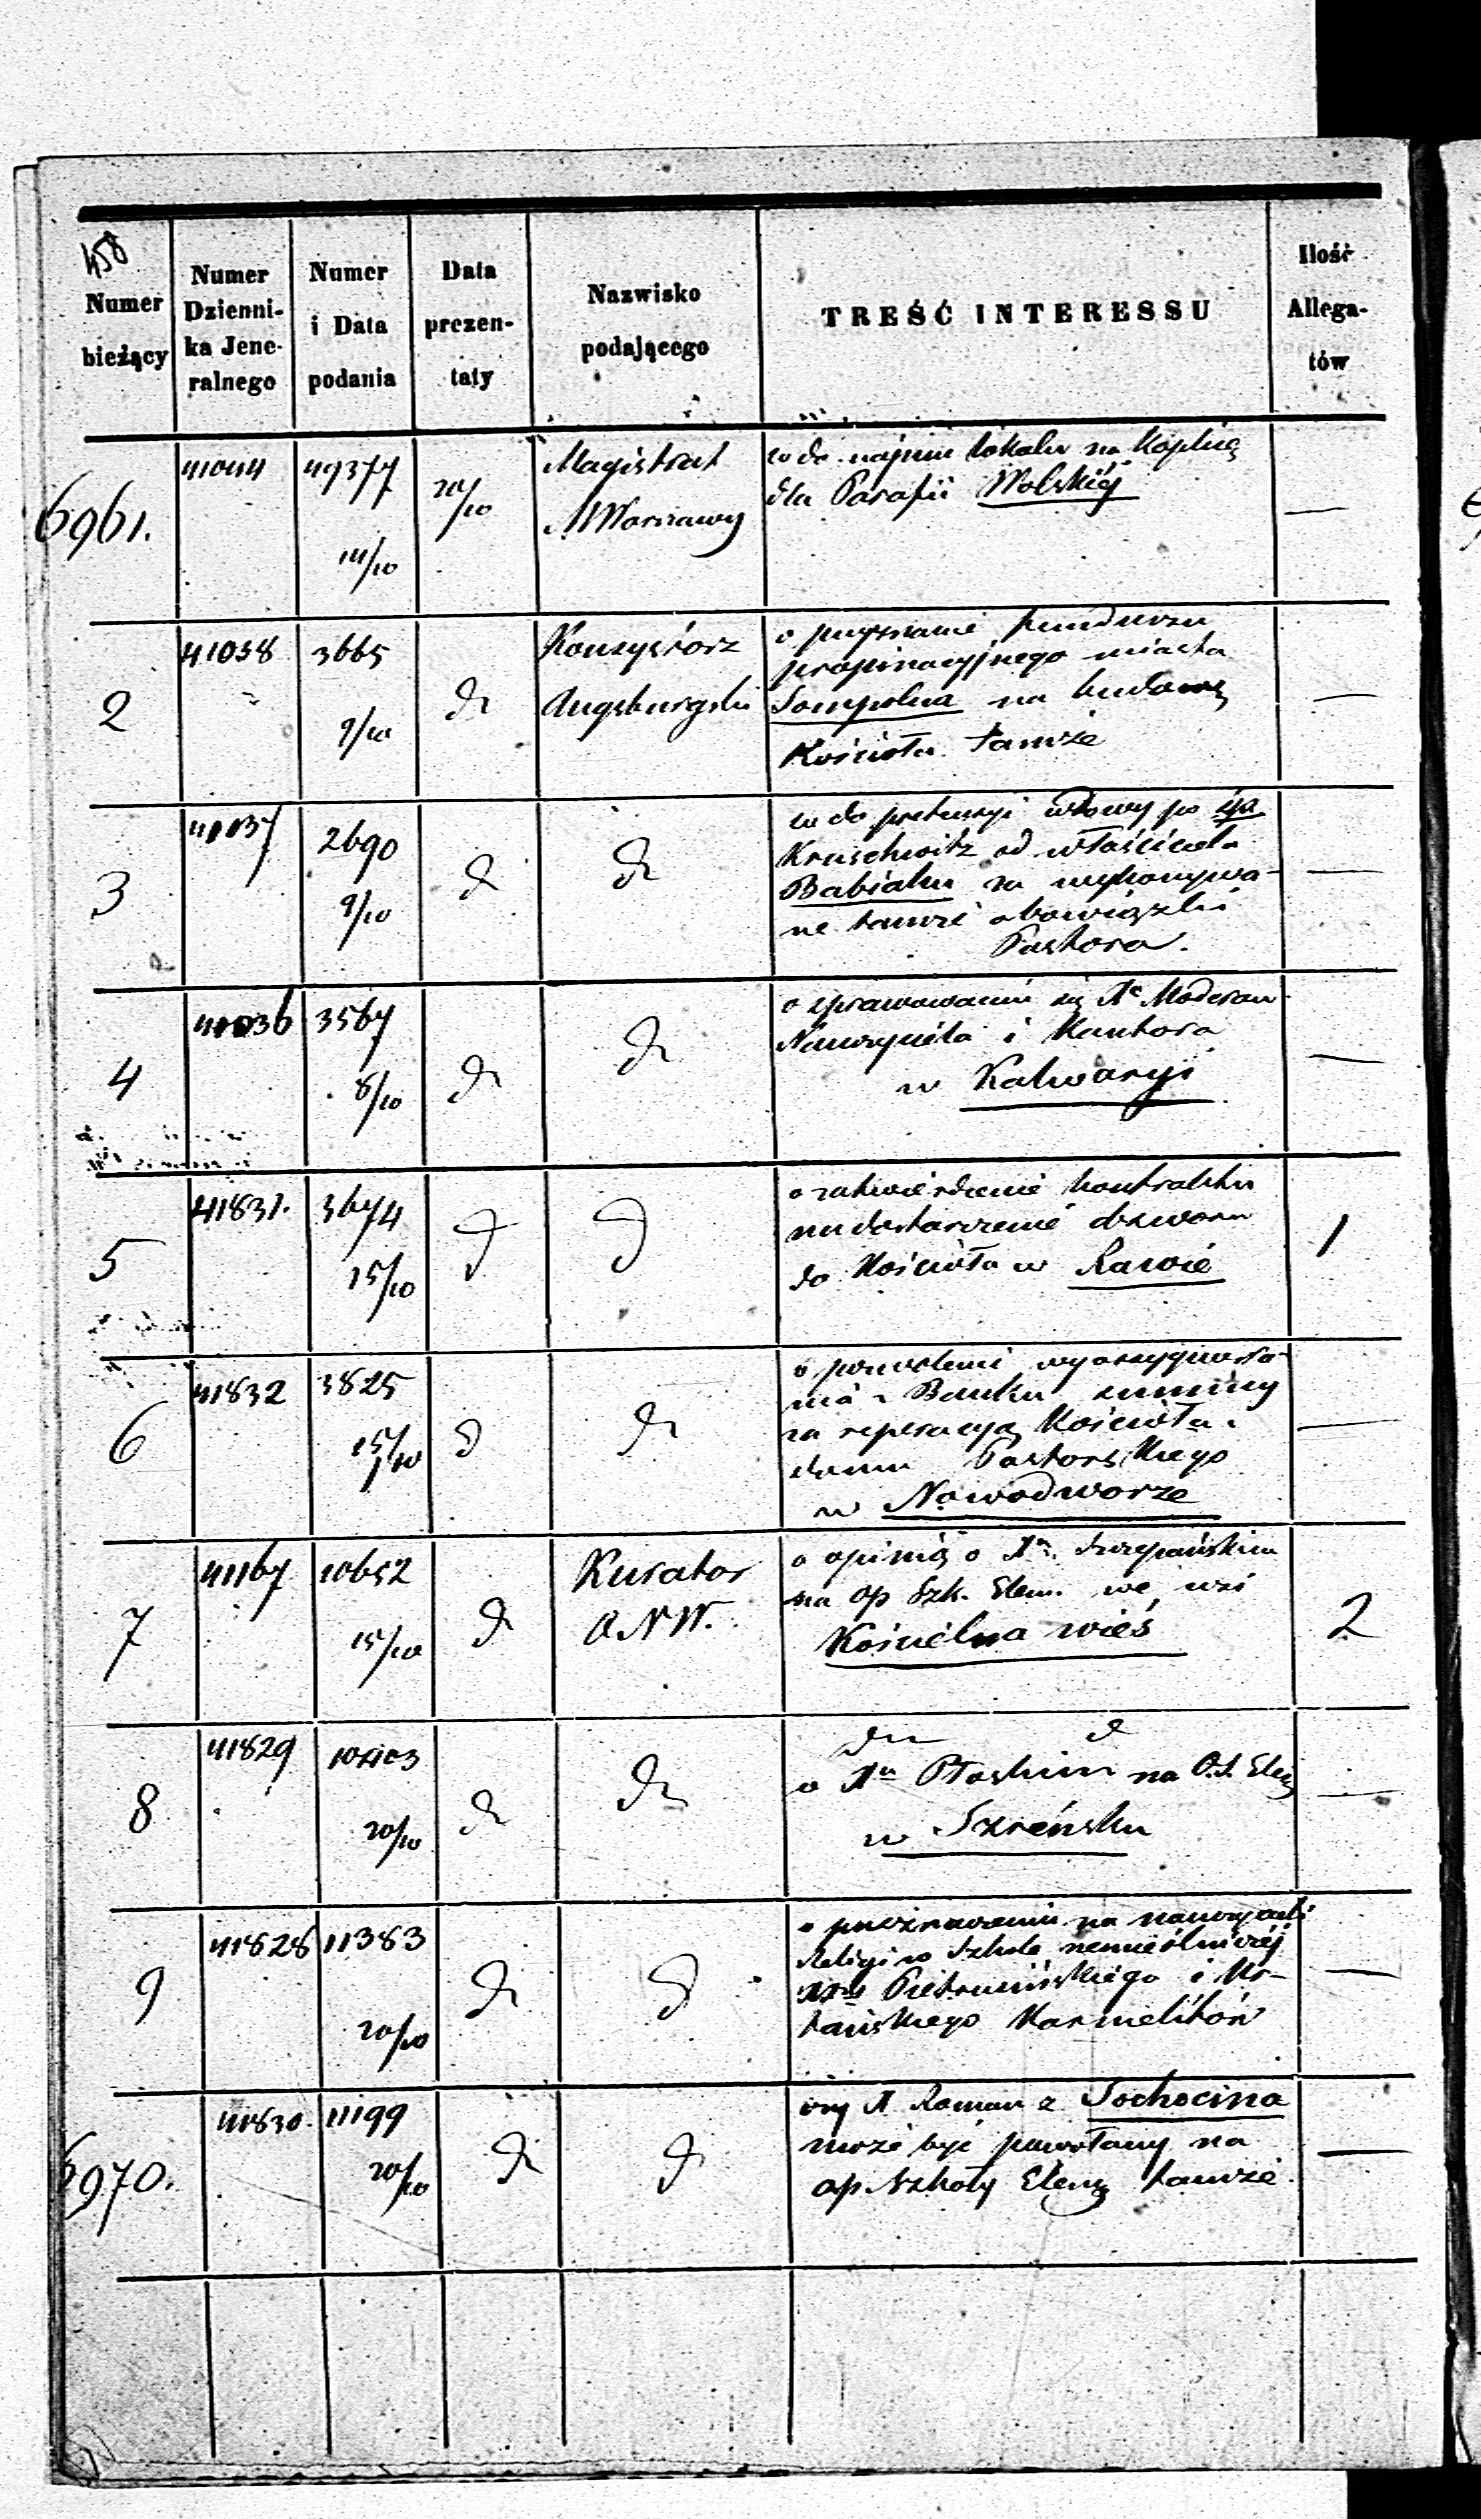 458
Numer bieżący
Numer Dzienni- ka Jene- ralnego
Numer i Data podania
Data prezen- taty
Nazwisko podającego
TREŚĆ INTERESSU
Ilość Allega- tów
6961.
41044
49377
14/10
20/10
Magistrat
M Warszawy
co do najmu lokalu na Kaplicę
dla Parafii Wolskiéj
—
2
41038
3665
9/10
d
Konsystorz
Augsburgski
o przyznanie funduszu
propinacyjnego miasta
Sompolna na budowę
Kościoła tamże
—
3
41037
2690
9/10
d
d
co do pretensyi wdowy po
Kruschwitz od właściciela
Babiaku za wykonywa-
ne tamże obowiązki
Pastora.
—
4
41036
3567
8/10
d
d
o sprawowaniu się Moderau
Nauczyciela i Kantora
w Kalwaryi
—
5
41831.
3674
15/10
d
d
o zatwierdzenie kontraktu
na dostarczenie dzwonu
do Kościoła w Rawie
1
6
41832
3825
15/10
d
d
o pozwolenie
z Banku summy
na reperacyą Kościoła i
domu Pastorskiego
w Nowodworze
—
7
41167
10652
15/10
d
Kurator
O N W.
o opinię o Xu. Szczepańskim
na op Szk. Elem. we wsi
Kościelna wieś
2
8
41829
20/10
d
d
d d
o Xu Płoskim na O. S. Elem
w Szreńsku
—
9
41828
11383
20/10
d
d
o na nauczycieli
Religii w Szkole rzemieślniczéj
Pietrusińskiego i Ko-
tańskiego Karmelitów
—
6970.
41830.
11199
20/10
d
d
czy X Roman z Sochocina
może być powołany na
op. Szkoły Elem tamże
—